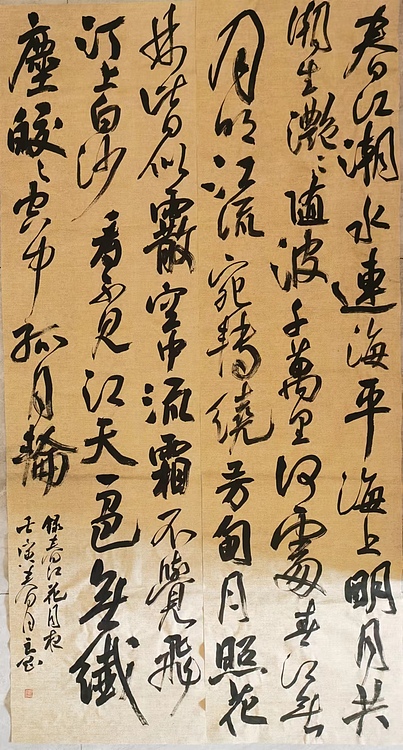 春江潮水連海平海上明月共
潮生灩々隨波千萬里何處春江無
月明江流宛轉繞芳甸月照花
林皆似霰空中流霜不覺飛
汀上白沙看不見江天一色無纖
塵皎々空中孤月輪
錄春江花月夜
壬寅